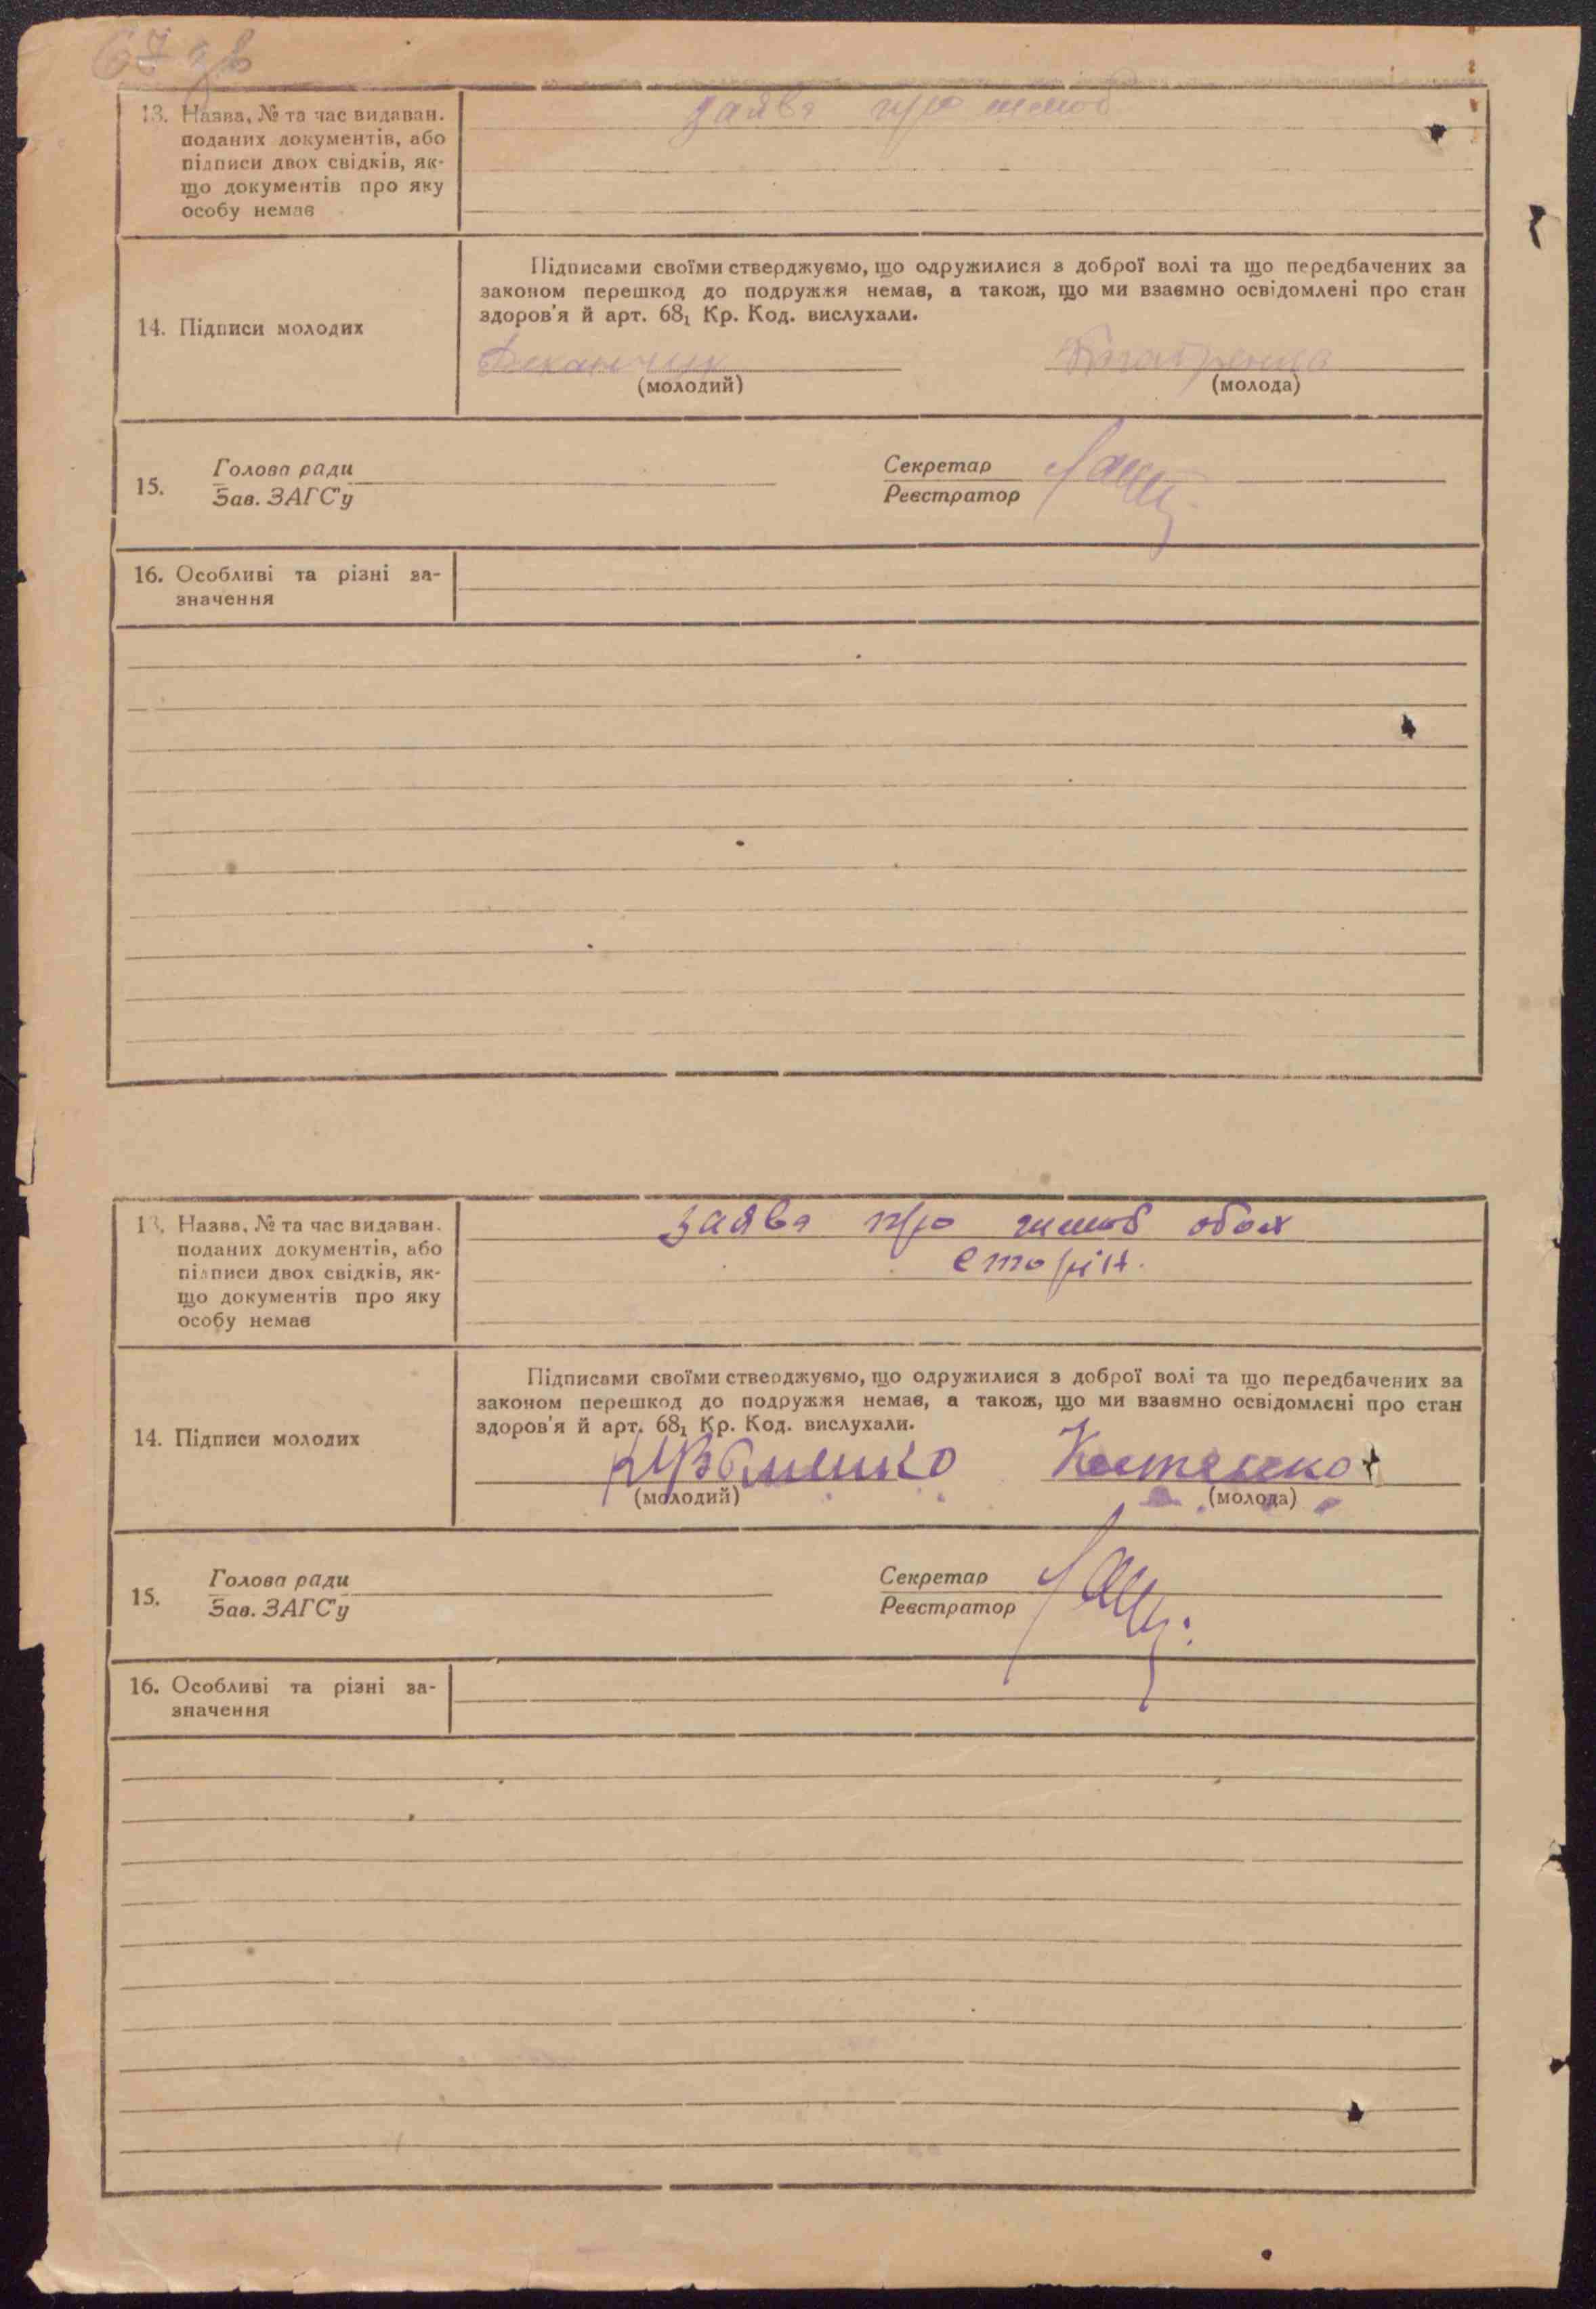 67 зв
13. Назва, № та час видаван.
поданих документів, або
підписи двох свідків, як-
що документів про яку
особу немає
заява про шлюб
14. Підписи молодих
Підписами своїми стверджуємо, що одружилися з доброї волі та що передбачених за
законом перешкод до подружжя немає, а також, що ми взаємно освідомлені про стан
здоров'я й арт. 68₁ Кр. Код. вислухали.
(молодий)
(молода)
15.
Голова ради
Зав. ЗАГС'у
Секретар
Реєстратор
16. Особливі та різні за-
значення
13. Назва, № та час видаван.
поданих документів, або
підписи двох свідків, як-
що документів про яку
особу немає
заява про шлюб обох
сторін.
14. Підписи молодих
Підписами своїми стверджуємо, що одружилися з доброї волі та що передбачених за
законом перешкод до подружжя немає, а також, що ми взаємно освідомлені про стан
здоров'я й арт. 68₁ Кр. Код. вислухали.
(молодий)
(молода)
15.
Голова ради
Зав. ЗАГС'у
Секретар
Реєстратор
16. Особливі та різні за-
значення